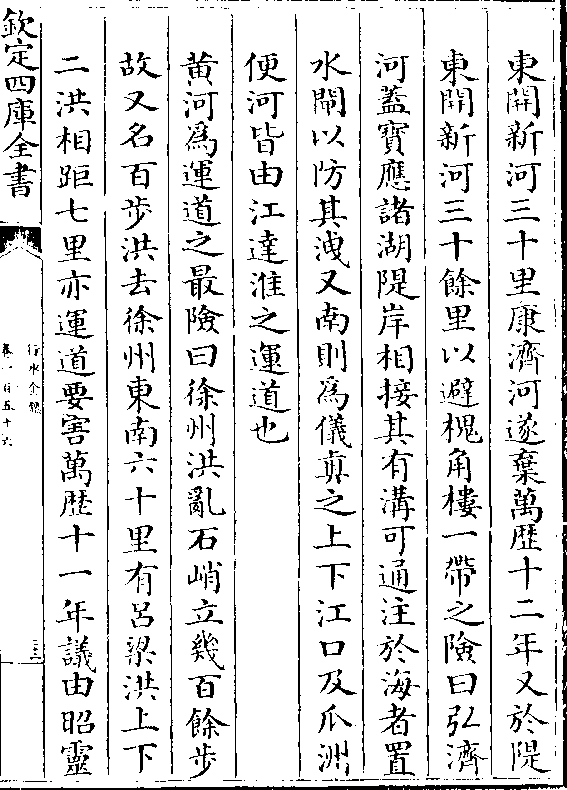 東開新河三十里康濟河遂棄萬歴十二年又於隄
東開新河三十餘里以避槐角樓一帶之險曰弘濟
河蓋寶應諸湖隄岸相接其有溝可通注於海者置
水閘以防其洩又南則為儀真之上下江口及瓜洲
便河皆由江達淮之運道也
黄河為運道之最險曰徐州洪亂石峭立幾百餘步
故又名百步洪去徐州東南六十里有呂梁洪上下
二洪相距七里亦運道要害萬歴十一年議由昭靈
欽定四庫全書
行水金鑑
卷一百五十六